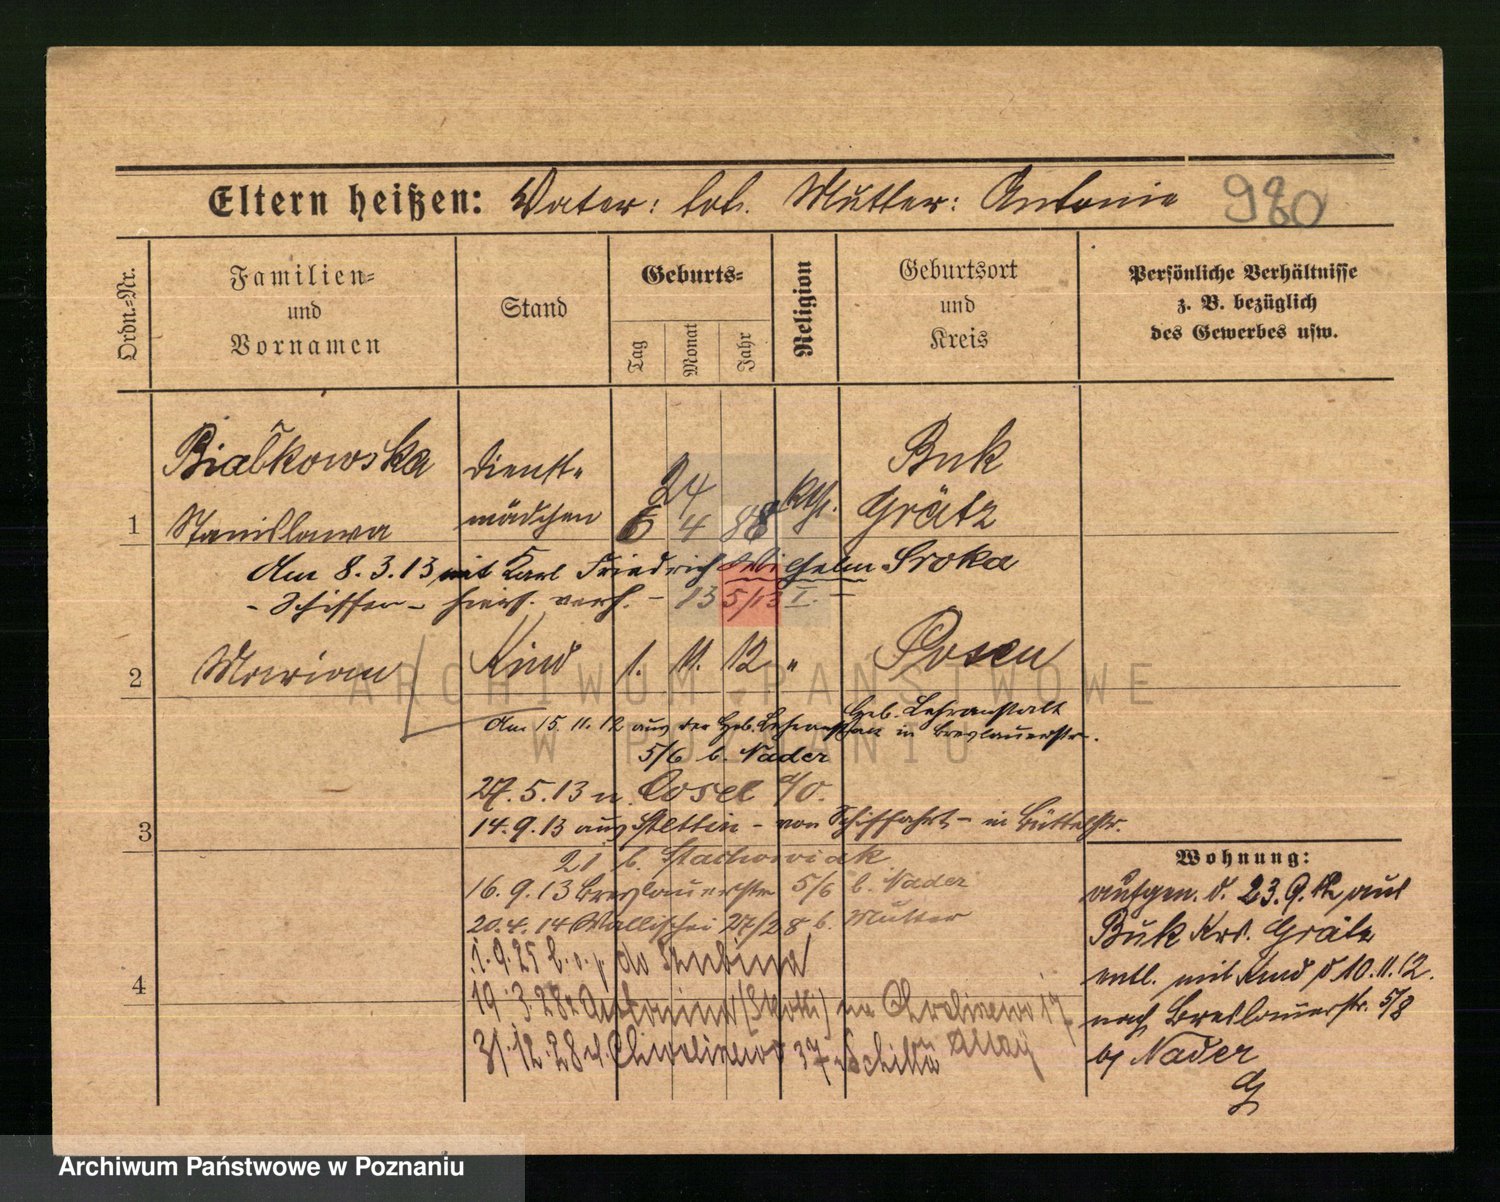 Eltern heißen: Vater: tot. Mutter: Antonie 980
Ordn.=Nr.
Familien=
und
Vornamen
Stand
Geburts=
Tag
Monat
Jahr
Religion
Geburtsort
und
Kreis
Persönliche Verhältnisse
z. B. bezüglich
des Gewerbes usw.
1
Białkowska
Stanislawa
Dienst=
mädchen
24
6 4 88
kth.
Buk
Grätz
Am 8.3.13 mit Karl Friedrich Wilhelm Sroka
- Schiffer - hiers. verh. - 13 5/13 I.
2
Marian
Kind
1. 11. 12
"
Posen
Geb. Lehranstalt
Am 15.11.12 aus der Geb. Lehranstalt in Breslauerstr.
5/6 b. Nader
27.5.13 n. Cosel a/O.
3
14.9.13 aus Stettin - von Schiffahrt - in Büttelstr.
21 b. Stachowiak
16.9.13 Breslauerstr 5/6 b. Nader
20.4.14 Wallischei 27/28 b. Mutter
4
1.9.25 do Szubina
19.3.28 na 17
31.12.28 37
Wohnung:
aufgen. d. 23.9.12 aus
Buk Krs. Grätz
entl. mit Kind d 10.11.12.
nach Breslauerstr. 5/8
bj Nader
ARCHIWUM PAŃSTWOWE
W POZNANIU
Archiwum Państwowe w Poznaniu